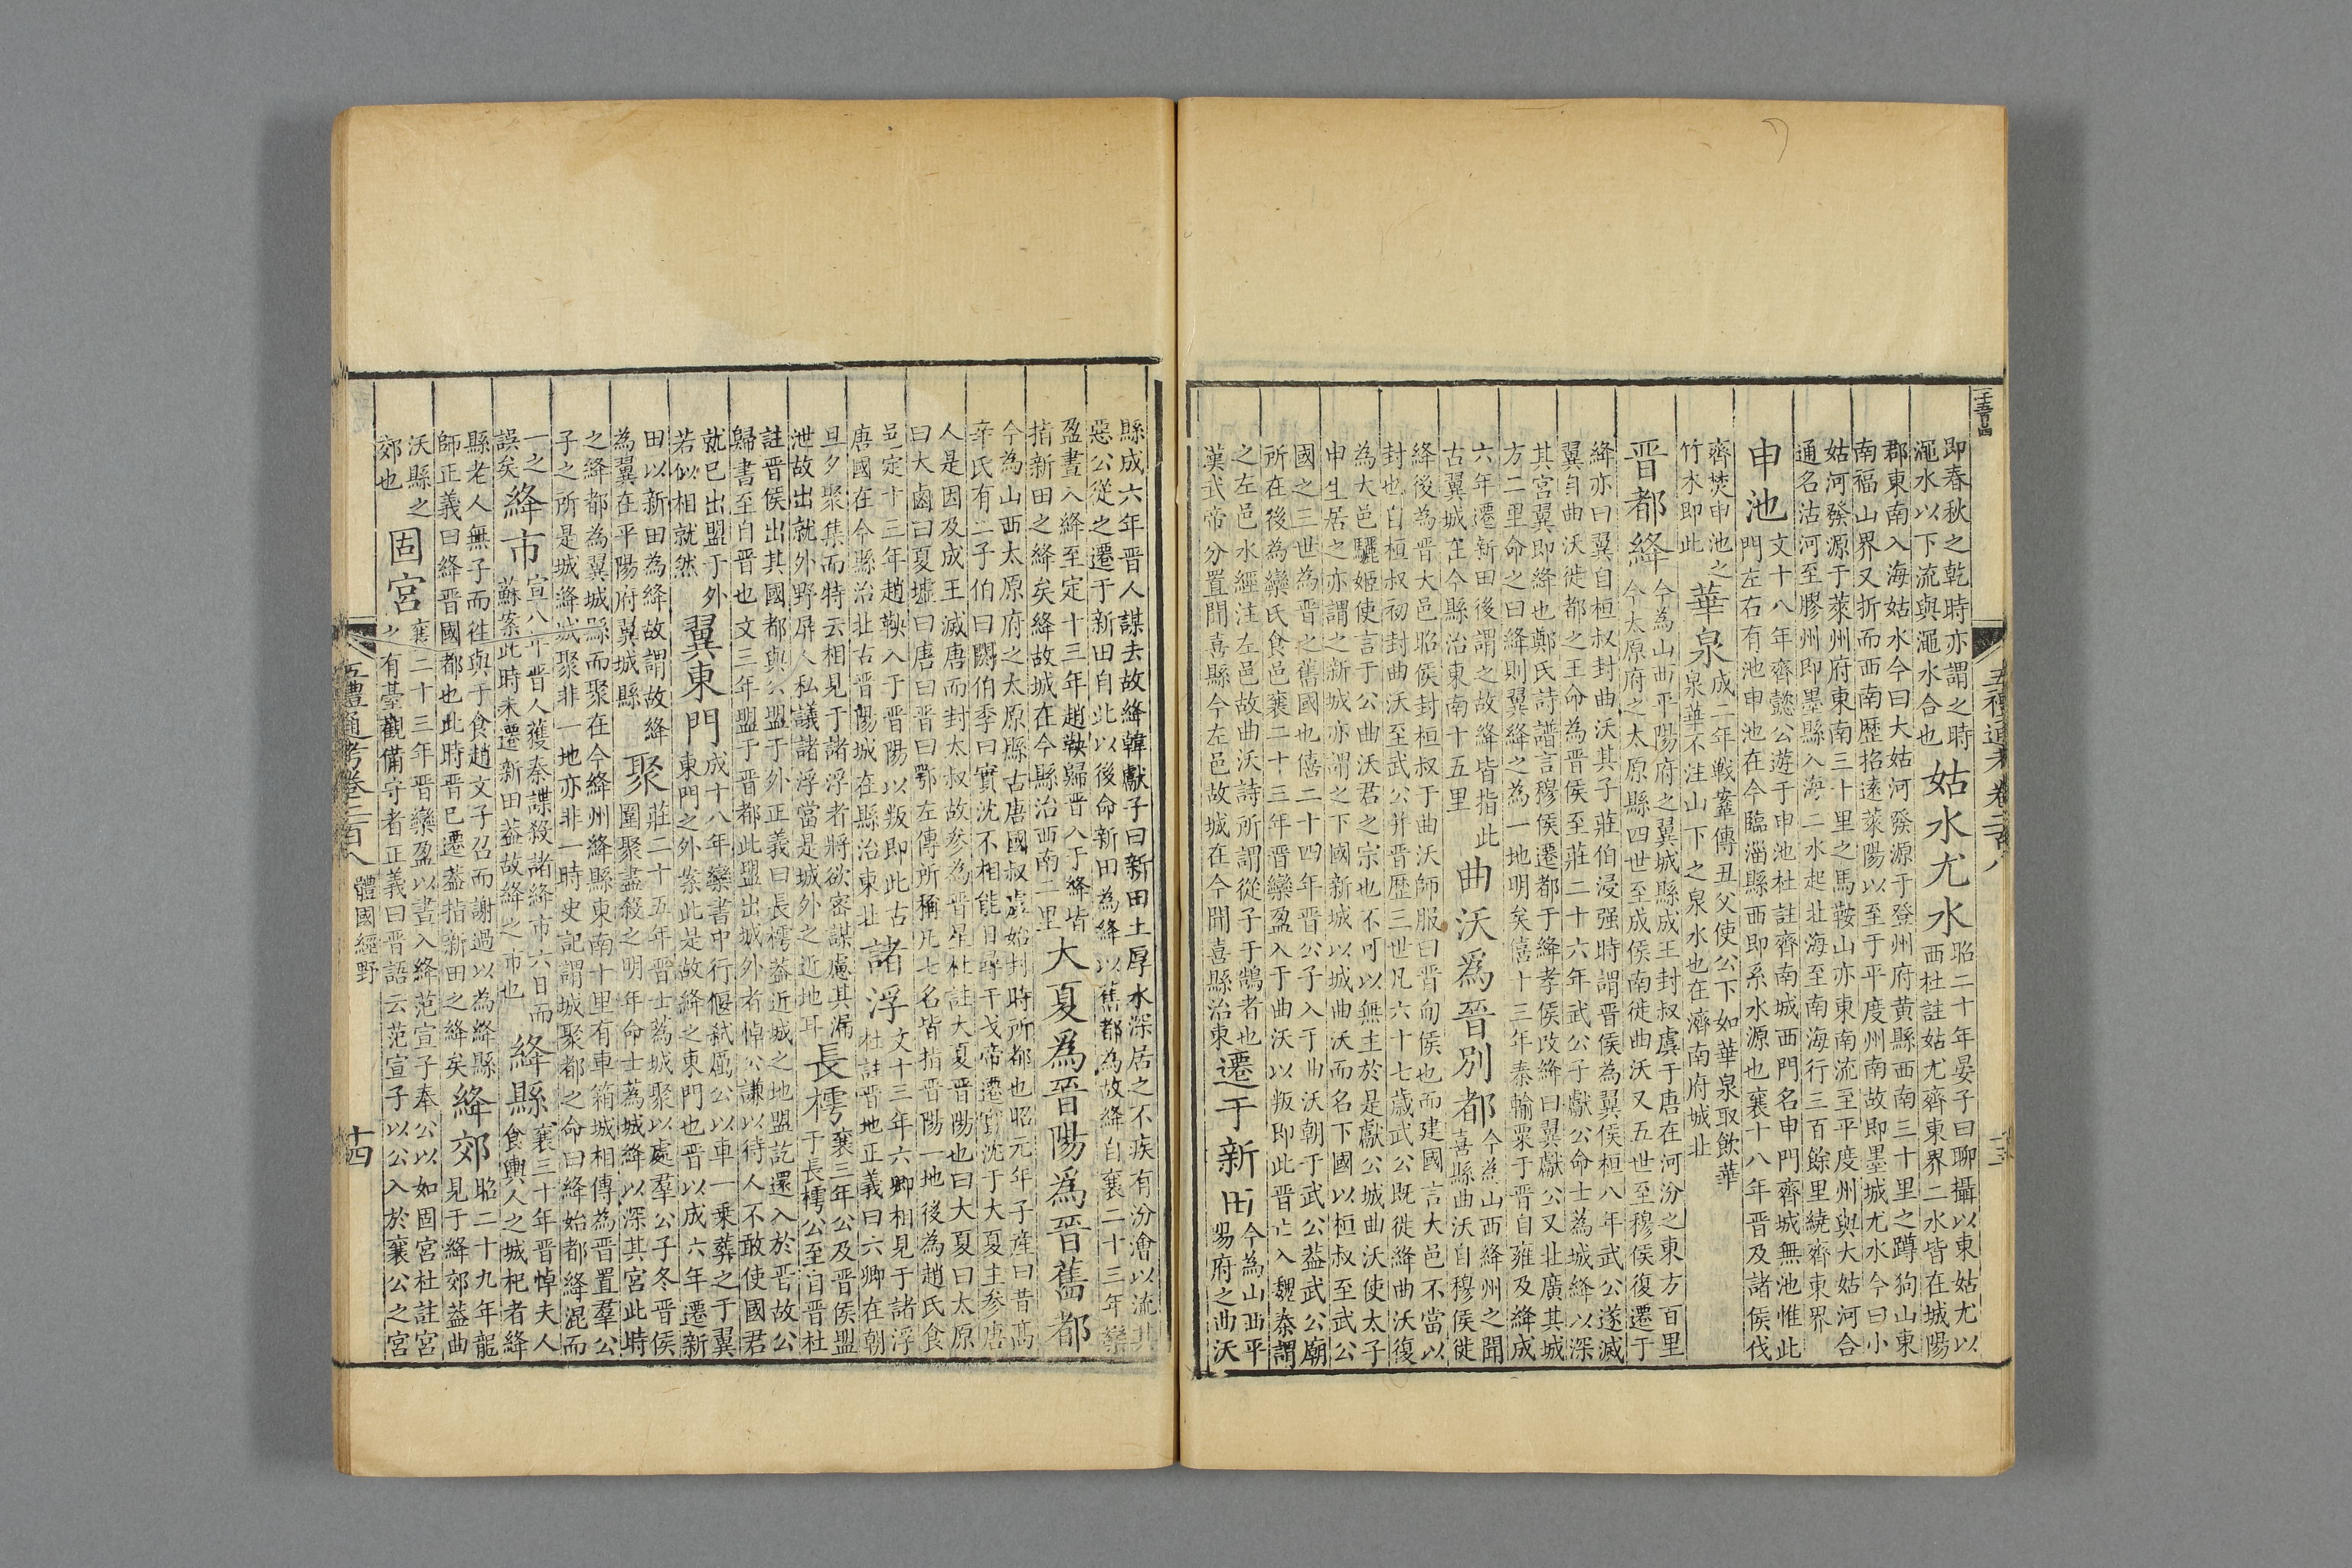 即春秋之乾時亦謂之時
澠水以下流與澠水合也
姑水尤水
昭二十年晏子曰聊攝以東姑尤以
西杜註姑尤齊東界二水皆在城陽
郡東南入海姑水今曰大姑河發源于登州府黃縣西南三十里之蹲狗山東
南福山界又折而西南歷招遠萊陽以至于平度州南故即墨城尤水今曰小
姑河發源于萊州府東南三十里之馬鞍山亦東南流至平度州與大姑河合
通名沽河至膠州即墨縣入海二水起北海至南海行三百餘里繞齊東界
申池
文十八年齊懿公遊于申池杜註齊南城西門名申門齊城無池惟此
門左右有池申池在今臨淄縣西即系水源也襄十八年晉及諸侯伐
齊焚申池之
竹木即此
華泉
成二年戰鞌傳丑父使公下如華泉取飲華
泉華不注山下之泉水也在濟南府城北
晉都絳
今為山西平陽府之翼城縣成王封叔虞于唐在河汾之東方百里
今太原府之太原縣四世至成侯南徙曲沃又五世至穆侯復遷于
絳亦曰翼自桓叔封曲沃其子莊伯浸强時謂晉侯為翼侯桓八年武公遂滅
翼自曲沃徙都之王命為晉侯至莊二十六年武公子獻公命士蒍城絳以深
其宮翼即絳也鄭氏詩譜言穆侯遷都于絳孝侯改絳曰翼獻公又北廣其城
方二里命之曰絳則翼絳之為一地明矣僖十三年秦輸粟于晉自雍及絳成
六年遷新田後謂之故絳皆指此
古翼城在今縣治東南十五里
曲沃爲晉別都
今為山西絳州之聞
喜縣曲沃自穆侯徙
絳後為晉大邑昭侯封桓叔于曲沃師服曰晉甸侯也而建國言大邑不當以
封也自桓叔初封曲沃至武公并晉歷三世凡六十七歲武公既徙絳曲沃復
為大邑驪姬使言于公曲沃君之宗也不可以無主於是獻公城曲沃使太子
申生居之亦謂之新城亦謂之下國新城以城曲沃而名下國以桓叔至武公
國之三世為晉之舊國也僖二十四年晉公子入于曲沃朝于武公蓋武公廟
所在後為欒氏食邑襄二十三年晉欒盈入于曲沃以叛即此晉亡入魏秦謂
之左邑水經注左邑故曲沃詩所謂從子于鵠者也
漢武帝分置聞喜縣今左邑故城在今聞喜縣治東
遷于新田
今為山西平
易府之曲沃
縣成六年晉人謀去故絳韓獻子曰新田土厚水深居之不疾有汾澮以流其
惡公從之遷于新田自此以後命新田為絳以舊都為故絳自襄二十三年欒
盈晝入絳至定十三年趙鞅歸晉入于絳皆
指新田之絳矣絳故城在今縣治西南二里
大夏爲晉陽爲晉舊都
今為山西太原府之太原縣古唐國叔虞始封時所都也昭元年子產曰昔高
辛氏有二子伯曰閼伯季曰實沈不相能日尋干戈帝遷實沈于大夏主參唐
人是因及成王滅唐而封太叔故參為晉星杜註大夏晉陽也曰大夏曰太原
曰大鹵曰夏墟曰唐曰晉曰鄂左傳所稱凡七名皆指晉陽一地後為趙氏食
邑定十三年趙鞅入于晉陽以叛即此古
唐國在今縣治北古晉陽城在縣治東北
諸浮
文十三年六卿相見于諸浮
杜註晉地正義曰六卿在朝
旦夕聚集而特云相見于諸浮者將欲密謀慮其漏
泄故出就外野屏人私議諸浮當是城外之近地耳
長樗
襄三年公及晉侯盟
于長樗公至自晉杜
註晉侯出其國都與公盟于外正義曰長樗蓋近城之地盟訖還入於晉故公
歸書至自晉也文三年盟于晉都此盟出城外者悼公謙以待人不敢使國君
就已出盟于外
若似相就然
翼東門
成十八年欒書中行偃弒厲公以車一乗葬之于翼
東門之外案此是故絳之東門也晉以成六年遷新
田以新田為絳故謂故絳
為翼在平陽府翼城縣
聚
莊二十五年晉士蒍城聚以處羣公子冬晉侯
圍聚盡殺之明年命士蒍城絳以深其宮此時
之絳都為翼城縣而聚在今絳州絳縣東南十里有車箱城相傳為晉置羣公
子之所是城絳城聚非一地亦非一時史記謂城聚都之命曰絳始都絳混而
一之
誤矣
絳市
宣八年晉人獲秦諜殺諸絳市六日而
蘇案此時未遷新田蓋故絳之市也
絳縣
襄三十年晉悼夫人
食輿人之城杞者絳
縣老人無子而徃與于食趙文子召而謝過以為絳縣
師正義曰絳晉國都也此時晉已遷蓋指新田之絳矣
絳郊
昭二十九年龍
見于絳郊蓋曲
沃縣之
郊也
固宮
襄二十三年晉欒盈以晝入絳范宣子奉公以如固宮杜註宮
之有臺觀備守者正義曰晉語云范宣子以公入於襄公之宮
五禮通考卷二百八
體國經野
十四